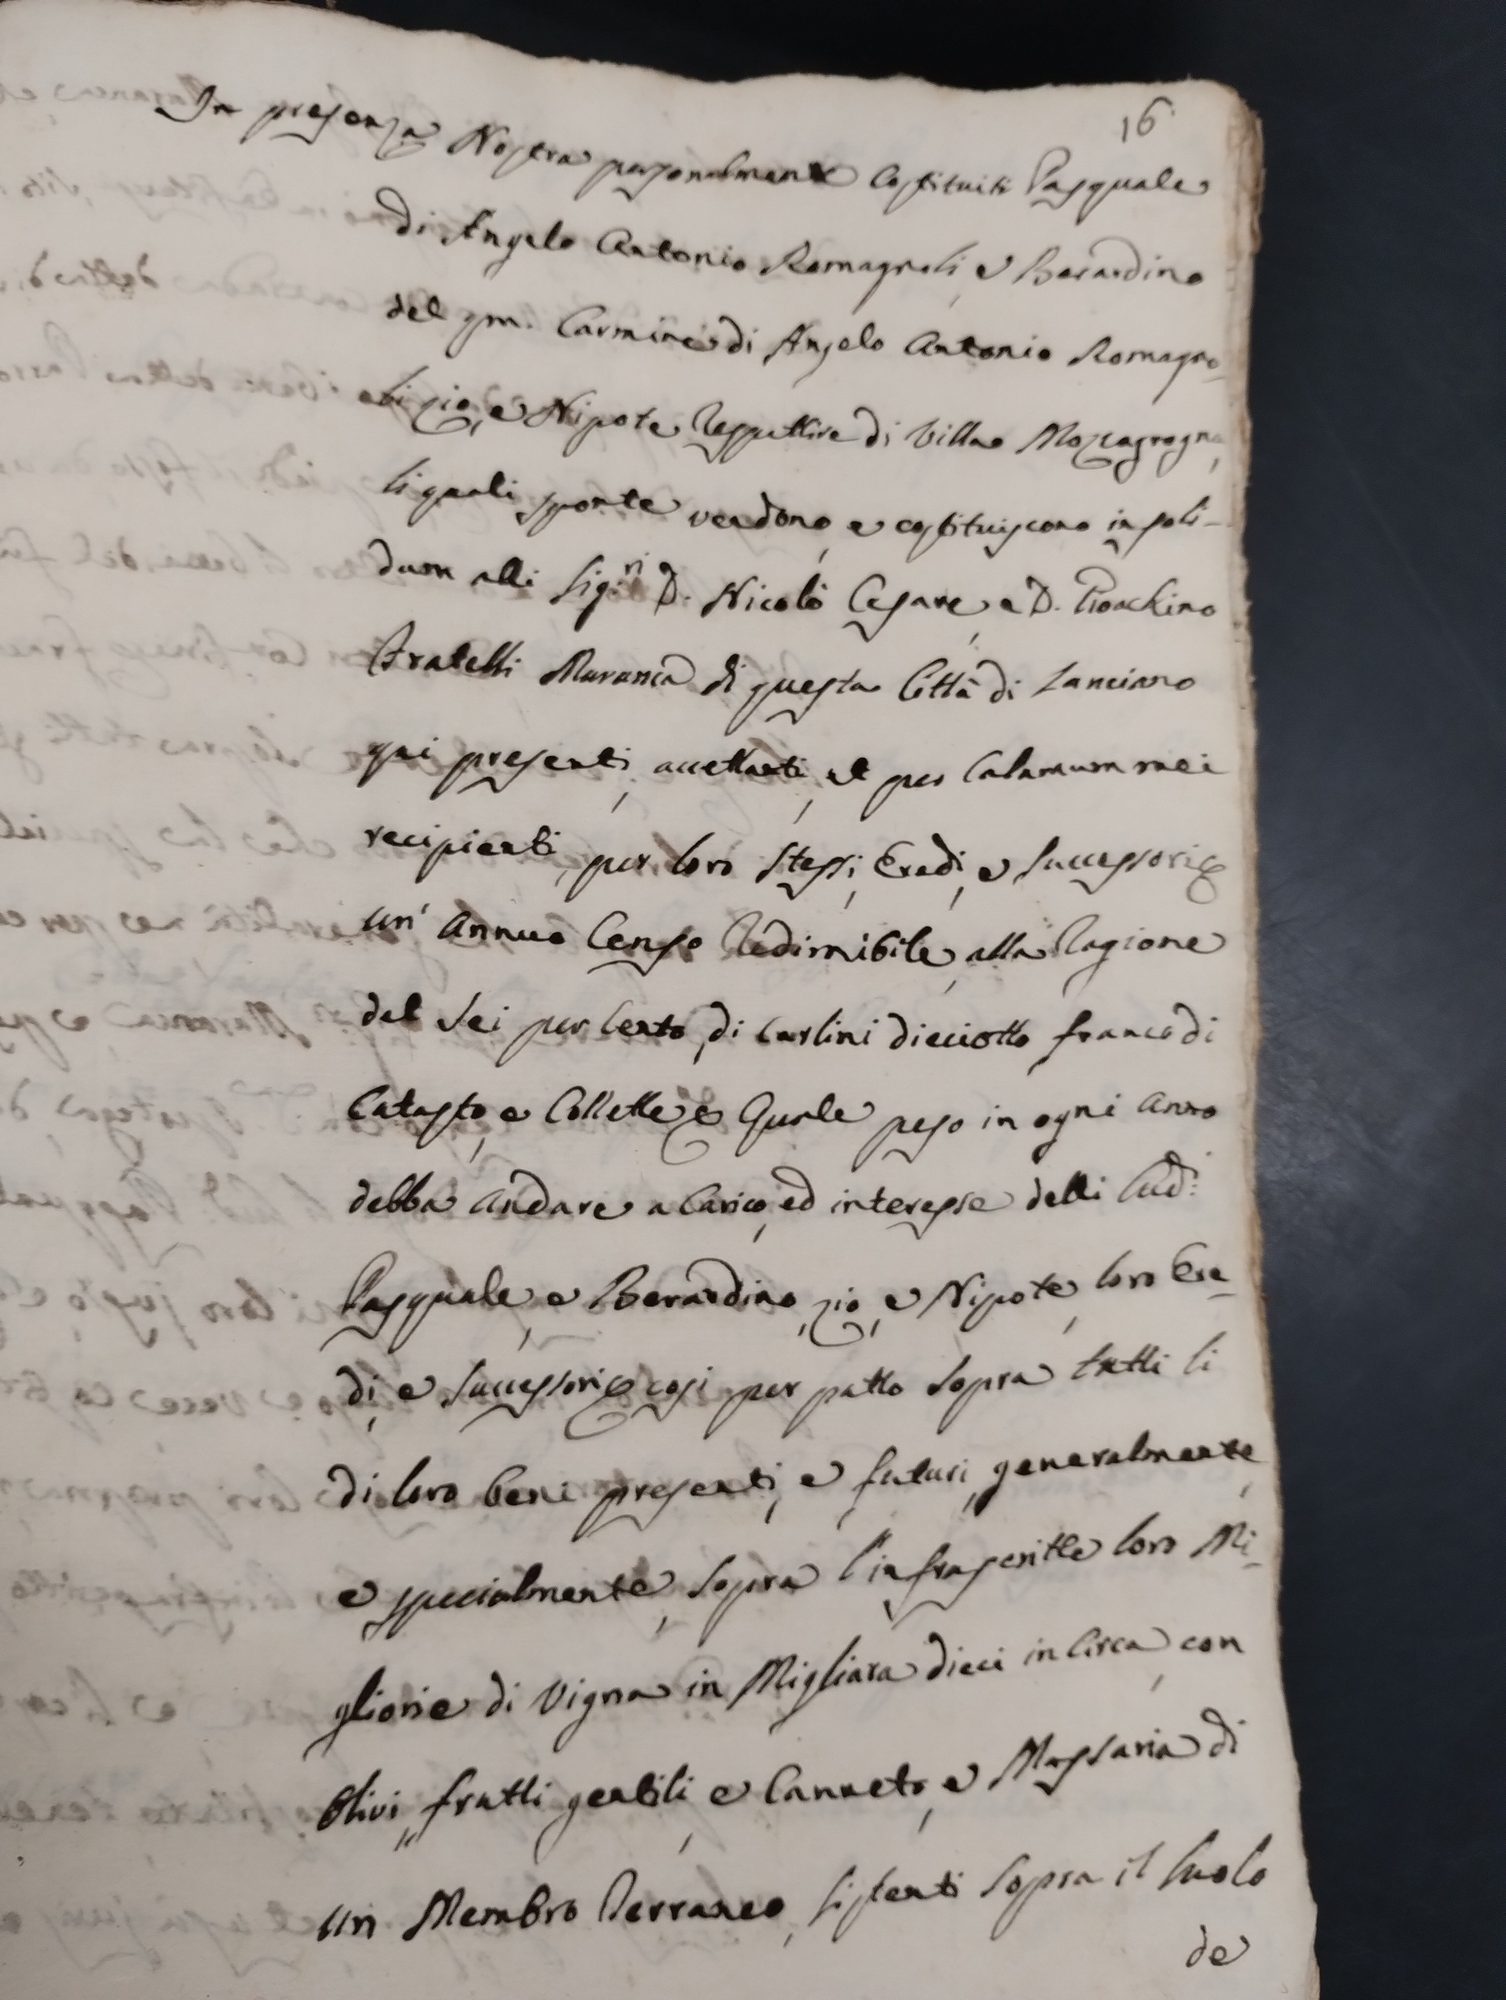 16
In presenza Nostra personalmente Costituiti Pasquale
di Angelo Antonio Romagnoli, e Berardino
del qm. Carmine di Angelo Antonio Romagno-
li zio, e Nipote Respettive di Villa Mozzagrogna,
li quali sponte vendono, e costituiscono in soli-
dum alli Sig.ri D. Nicolò Cesare, e D. Gioachino
Fratelli Maranca di questa Città di Lanciano
qui presenti, accettanti, et per Calamum mei
recipienti, per loro stessi, Eredi, e Successori &
un' annuo Censo Redimibile, alla Ragione
del Sei per Cento, di Carlini dieciotto, franco di
Catasto, e Collette & Quale peso in ogni anno
debba andare a Carico, ed interesse delli sud:
Pasquale, e Berardino, zio, e Nipote, loro Ere-
di, e Successori & cosi per patto sopra tutti li
di loro beni presenti, e futuri, generalmente,
e specialmente, sopra l'infrascritte loro Mi-
gliorie di Vigna in Migliara dieci in Circa, con
Olivi, frutti gentili, e Canneto, e Massaria di
un Membro Terraneo, sistenti sopra il suolo
de